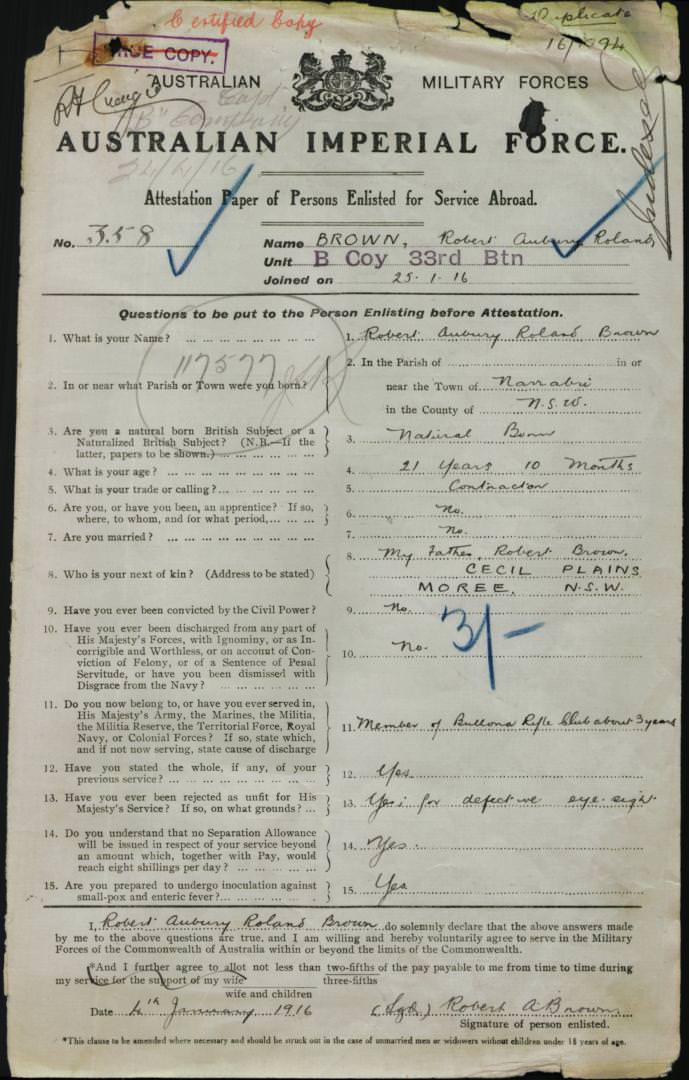 Certified Copy
Duplicate
TRUE COPY.
AUSTRALIAN MILITARY FORCES
Capt.
"B" Company
24/4/16
Indexed
AUSTRALIAN IMPERIAL FORCE.
Attestation Paper of Persons Enlisted for Service Abroad.
No. 358 Name BROWN, Robert Aubury Roland
Unit B Coy 33rd Btn
Joined on 25.1.16
Questions to be put to the Person Enlisting before Attestation.
1. What is your Name? 1. Robert Aubury Roland Brown
117577
2. In or near what Parish or Town were you born? 2. In the Parish of in or
near the Town of Narrabri
in the County of N.S.W.
3. Are you a natural born British Subject or a
Naturalized British Subject? (N.B.—If the
latter, papers to be shown.) 3. Natural Born
4. What is your age? 4. 21 Years 10 Months
5. What is your trade or calling? 5. Contractor
6. Are you, or have you been, an apprentice? If so,
where, to whom, and for what period, 6. No.
7. Are you married? 7. No.
8. Who is your next of kin? (Address to be stated) 8. My Father, Robert Brown.
CECIL PLAINS
MOREE. N.S.W.
9. Have you ever been convicted by the Civil Power? 9. No.
3/-
10. Have you ever been discharged from any part of
His Majesty's Forces, with Ignominy, or as In-
corrigible and Worthless, or on account of Con-
viction of Felony, or of a Sentence of Penal
Servitude, or have you been dismissed with
Disgrace from the Navy? 10. No.
11. Do you now belong to, or have you ever served in,
His Majesty's Army, the Marines, the Militia,
the Militia Reserve, the Territorial Force, Royal
Navy, or Colonial Forces? If so, state which,
and if not now serving, state cause of discharge 11. Member of Bullona Rifle Club about 3 years
12. Have you stated the whole, if any, of your
previous service? 12. Yes.
13. Have you ever been rejected as unfit for His
Majesty's Service? If so, on what grounds? 13. Yes, for defective eye sight
14. Do you understand that no Separation Allowance
will be issued in respect of your service beyond
an amount which, together with Pay, would
reach eight shillings per day? 14. Yes.
15. Are you prepared to undergo inoculation against
small-pox and enteric fever? 15. Yes
I, Robert Aubury Roland Brown do solemnly declare that the above answers made
by me to the above questions are true, and I am willing and hereby voluntarily agree to serve in the Military
Forces of the Commonwealth of Australia within or beyond the limits of the Commonwealth.
*And I further agree to allot not less than two-fifths of the pay payable to me from time to time during
three-fifths
my service for the support of my wife
wife and children
Date 4th January 1916 (Sgd.) Robert A Brown
Signature of person enlisted.
*This clause to be amended where necessary and should be struck out in the case of unmarried men or widowers without children under 18 years of age.